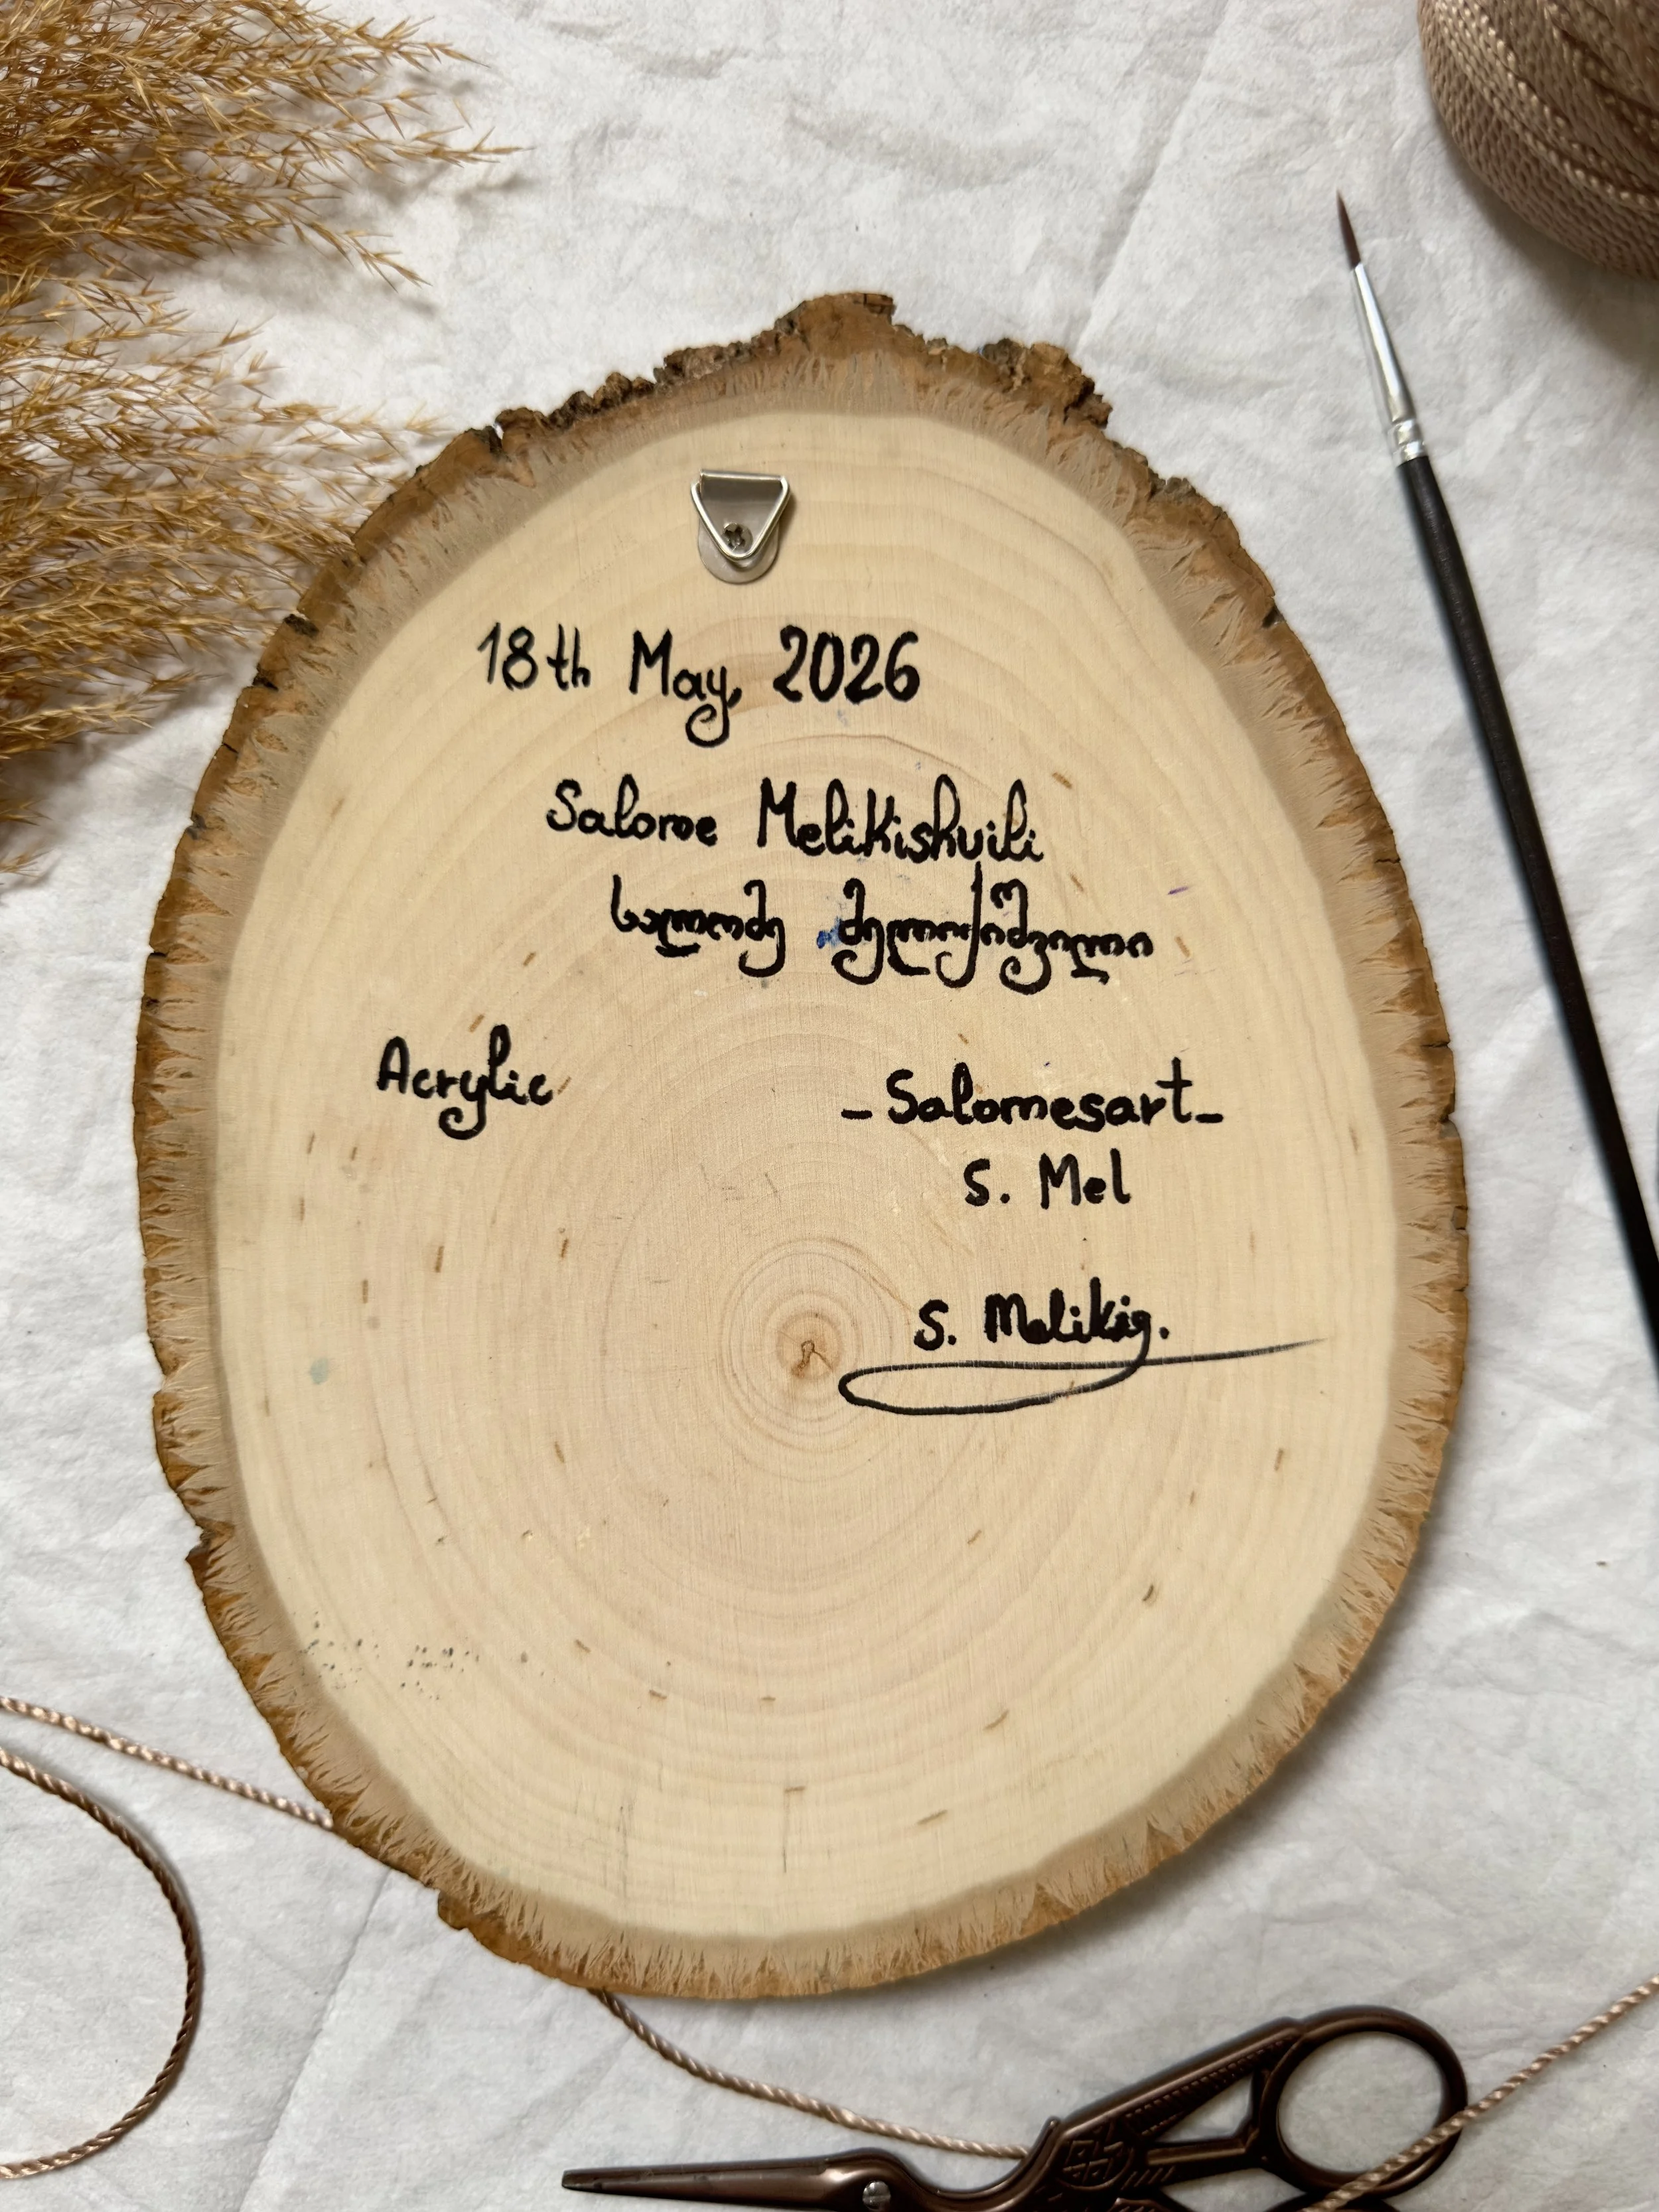 18th May, 2026
Salome Melikishvili
სალომე მელიქიშვილი
Acrylic
_Salomesart_
S. Mel
S. Melikiş.